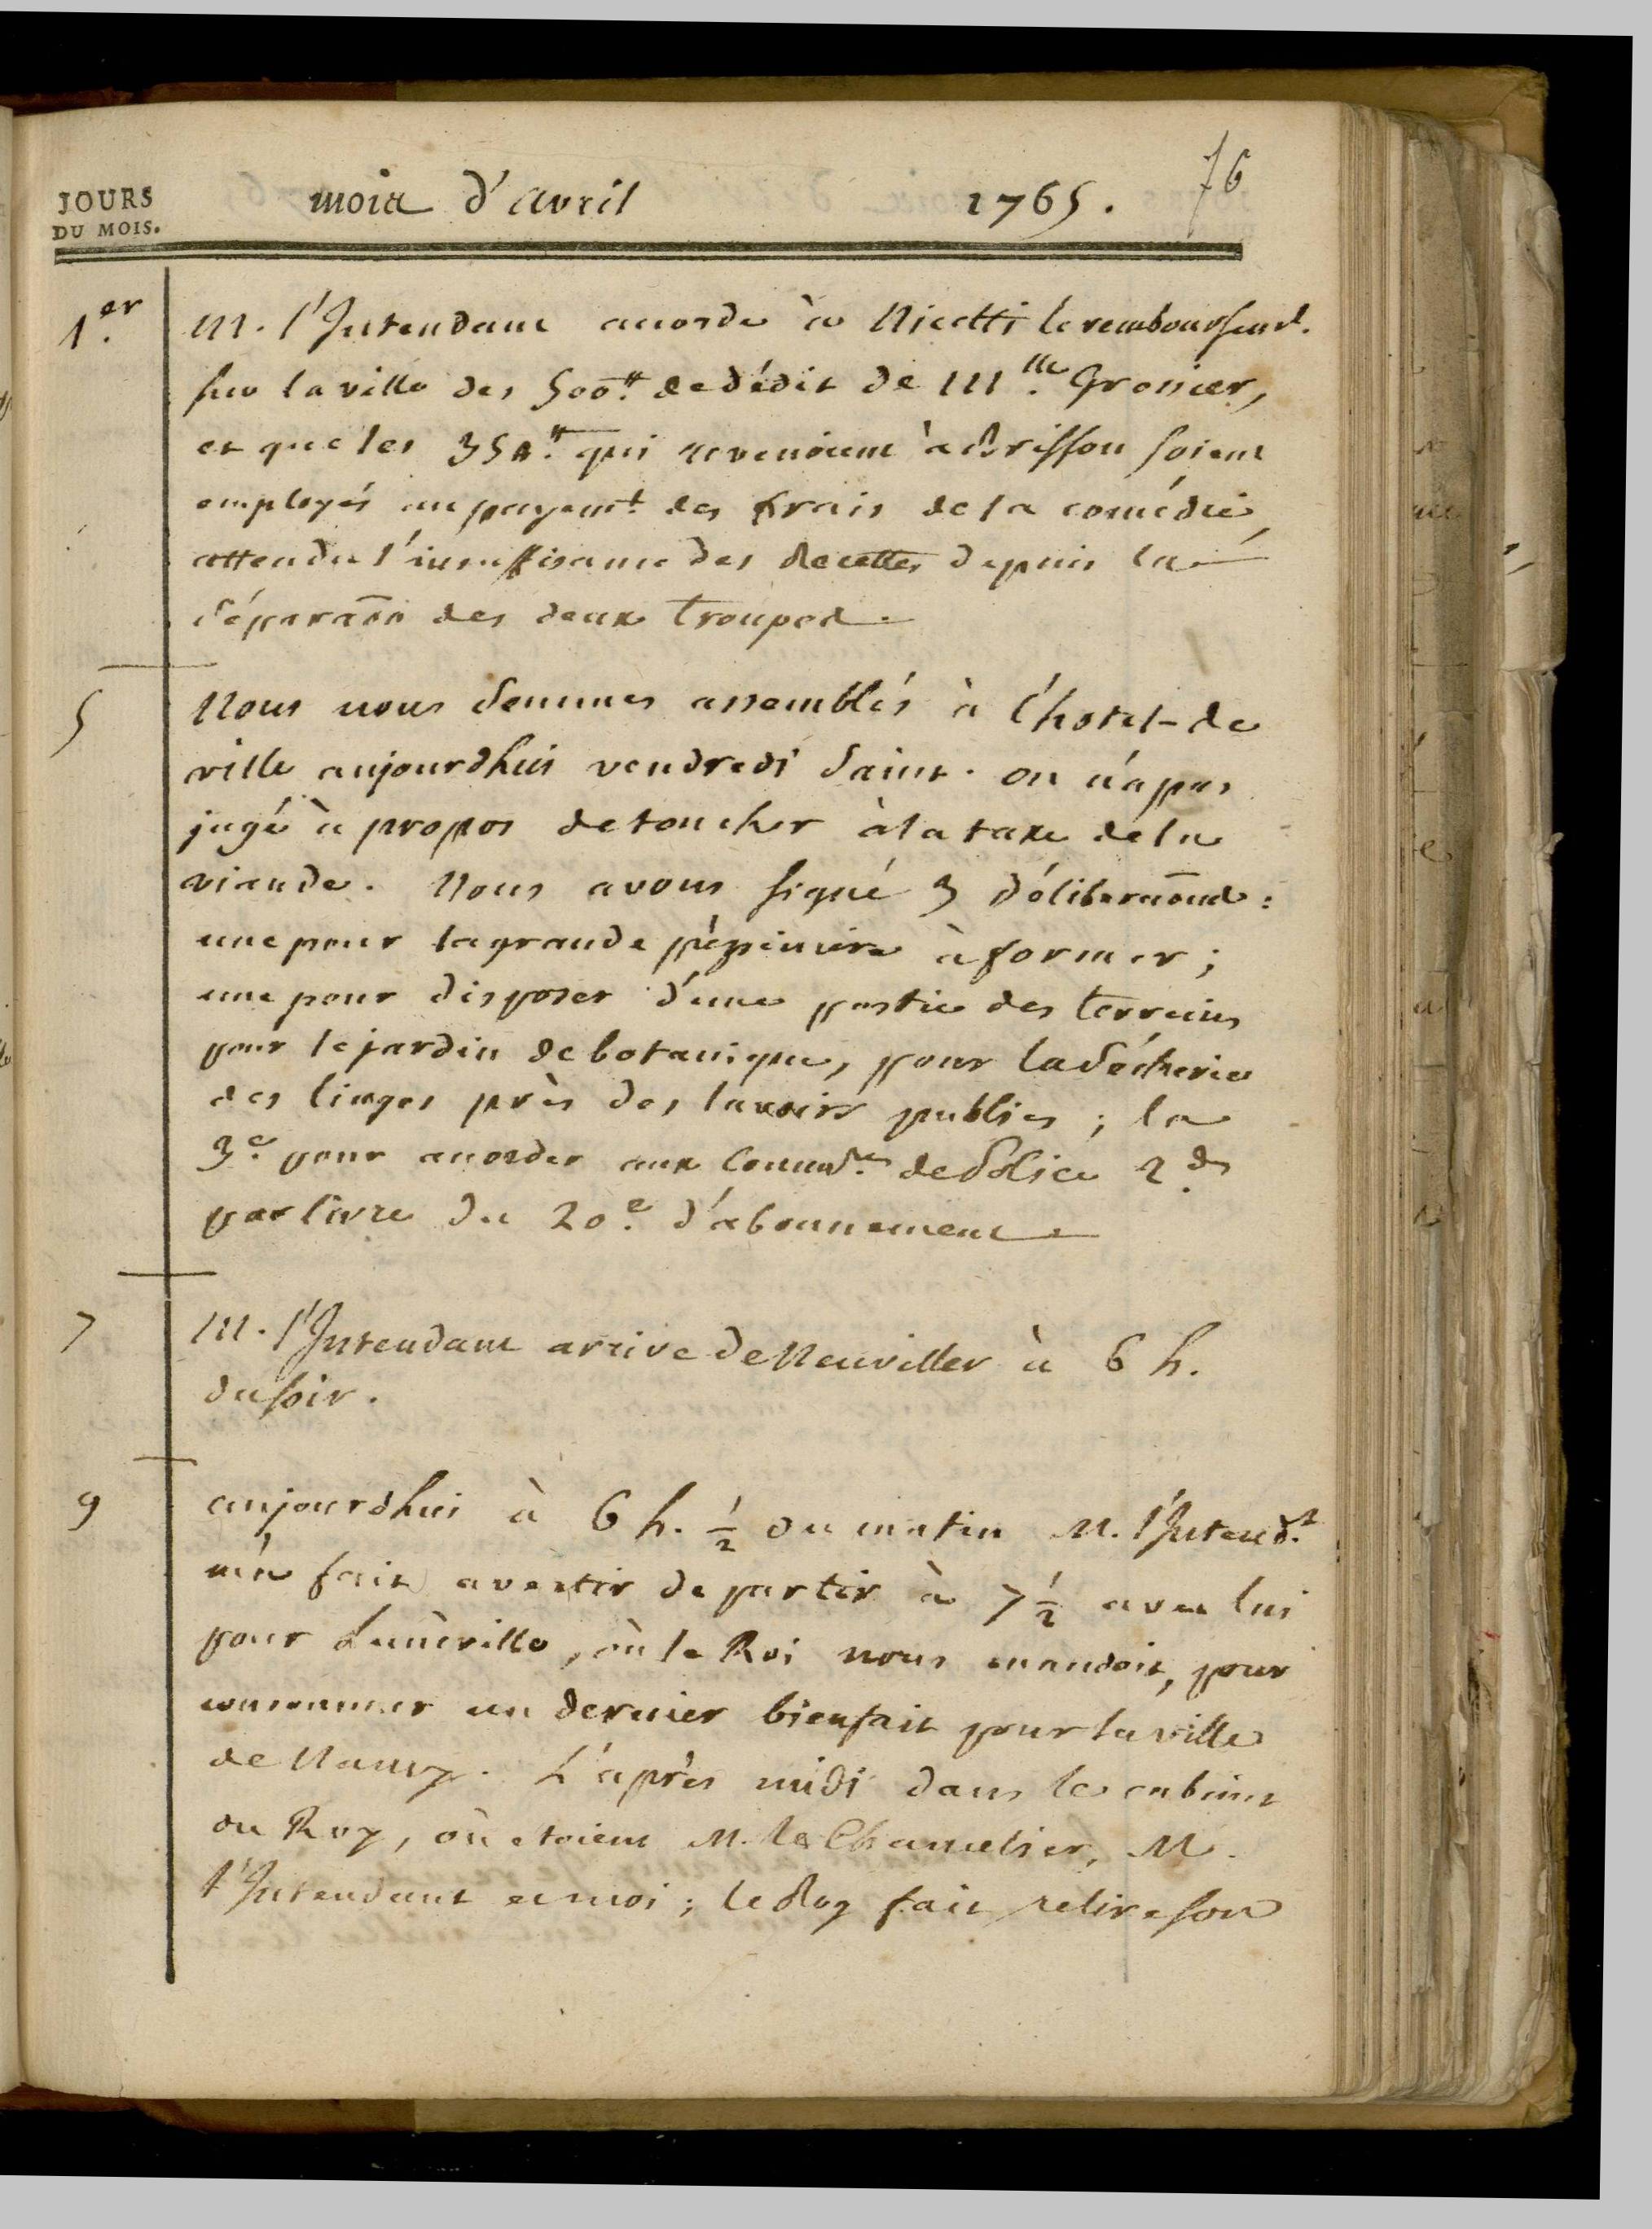 JOURS
DU MOIS.
mois d'avril 1765. 76
1.er M. l'Intendant acorde à Nicetti le remboursem.t
sur la ville des 500.# de dédit de M.lle Grosier,
et que les 350.# qui revenoient à Brisson soient
employés au payem.t des frais de la comédie,
attendu l'insuffisance des Recettes depuis la
séparaōn des deux Troupes.
5 Nous nous sommes assemblés à l'hotel-de
ville aujourdhui vendredi saint. on n'a pas
jugé à propos de toucher à la taxe de la
viande. Nous avons signé 3 déliberaōns:
une pour la grande pépiniere à former;
une pour disposer d'une partie des Terreins
pour le jardin de botanique, pour la sécherie
des linges près des lavoirs publics; la
3.e pour acorder aux Comm.res de Police 2.ds
par livre du 20.e d'abonnement
7 M. l'Intendant arrive de Neuviller à 6 h.
du soir.
9 aujourdhui à 6 h. 1/2 du matin M. l'Intend.t
m'a fait avertir de partir à 7 1/2 avec lui
pour Lunéville, où le Roi nous mandoit, pour
consommer un dernier bienfait pour la ville
de Nancy. L'après midi dans le cabinet
du Roy, où etoient M. le Chancelier, M.
l'Intendant et moi; le Roy fait relire son